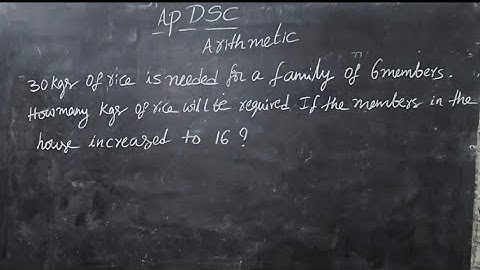 Ap DSC
Arithmetic
30 kgs of rice is needed for a family of 6 members.
How many kgs of rice will be required If the members in the
house increased to 16 ?